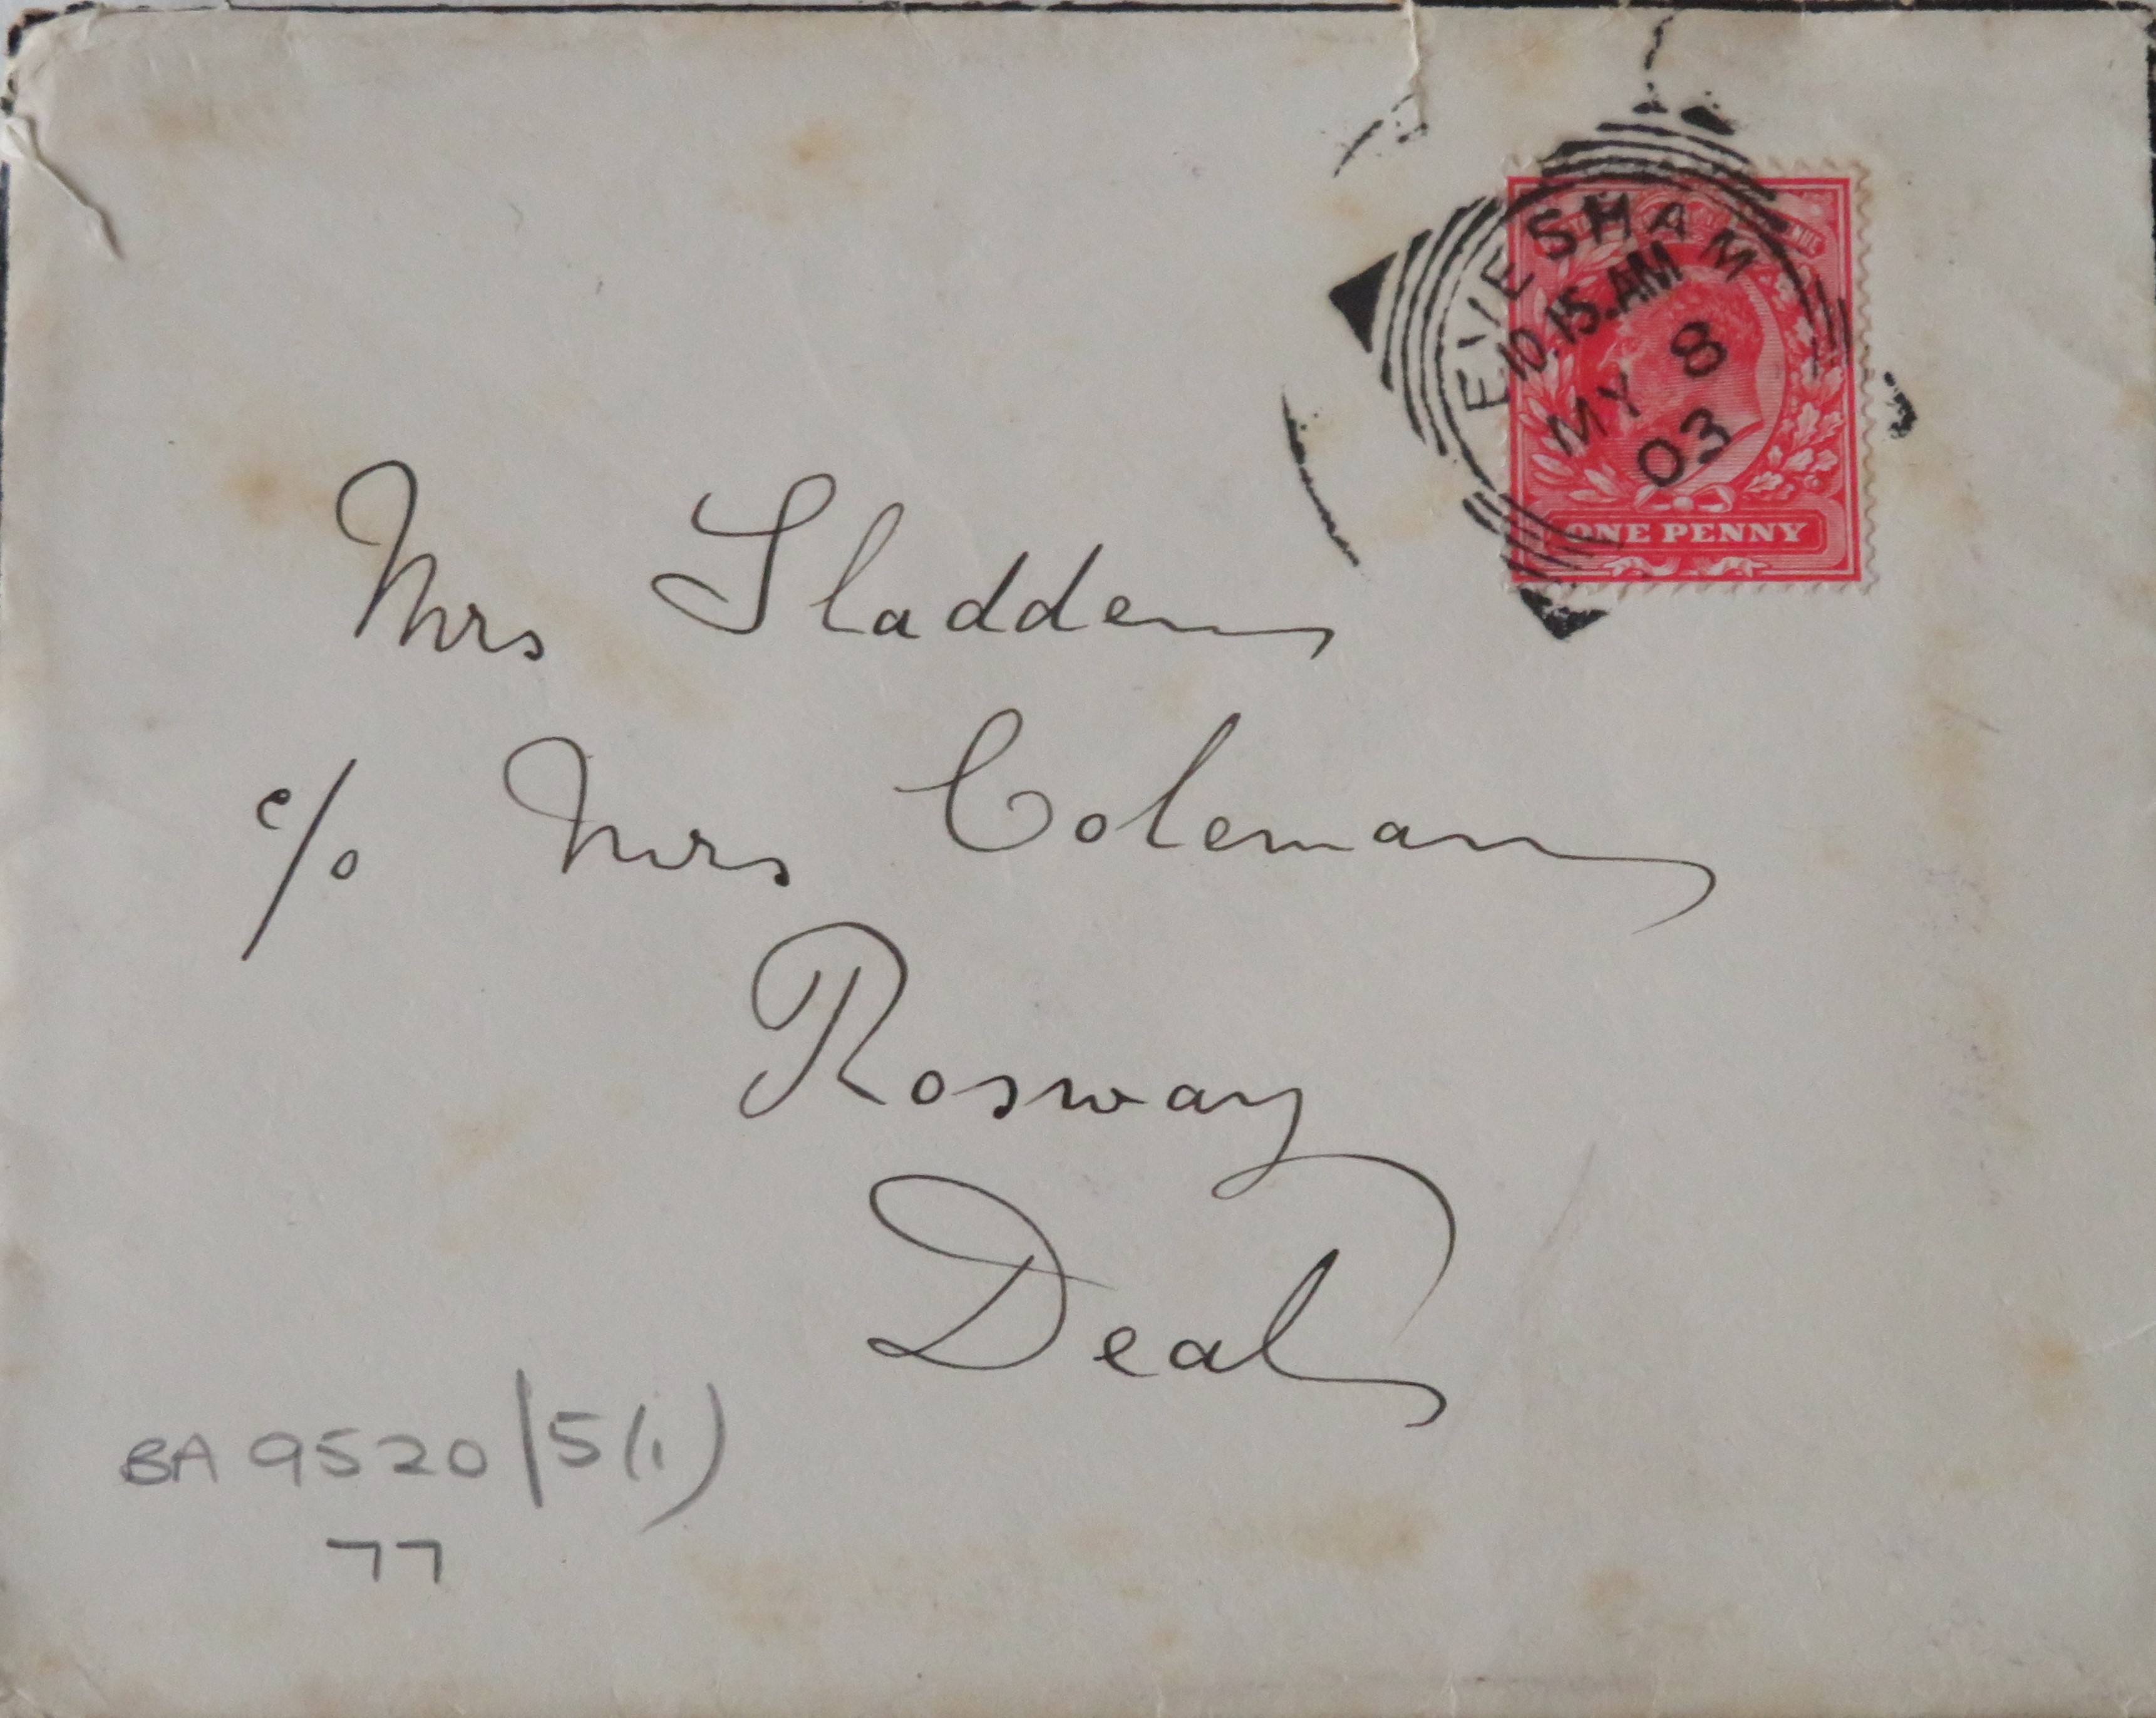 EVESHAM
10.15 AM
MY 8
03
ONE PENNY
Mrs Sladden
c/o Mrs Coleman
Rosway
Deal
BA 9520/5(i)
77